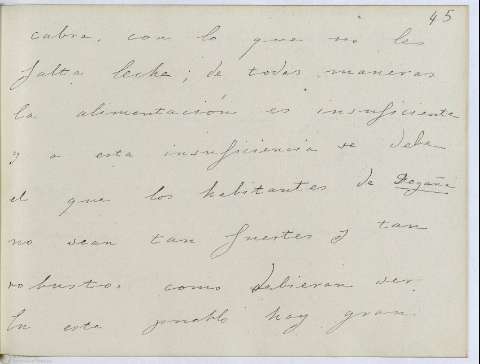 45
cabra, con lo que no les
falta leche; de todas maneras
la alimentación es insuficiente
y a esta insuficiencia se debe
el que los habitantes de
no sean tan fuertes y tan
robustos como debieran ser.
En este pueblo hay gran